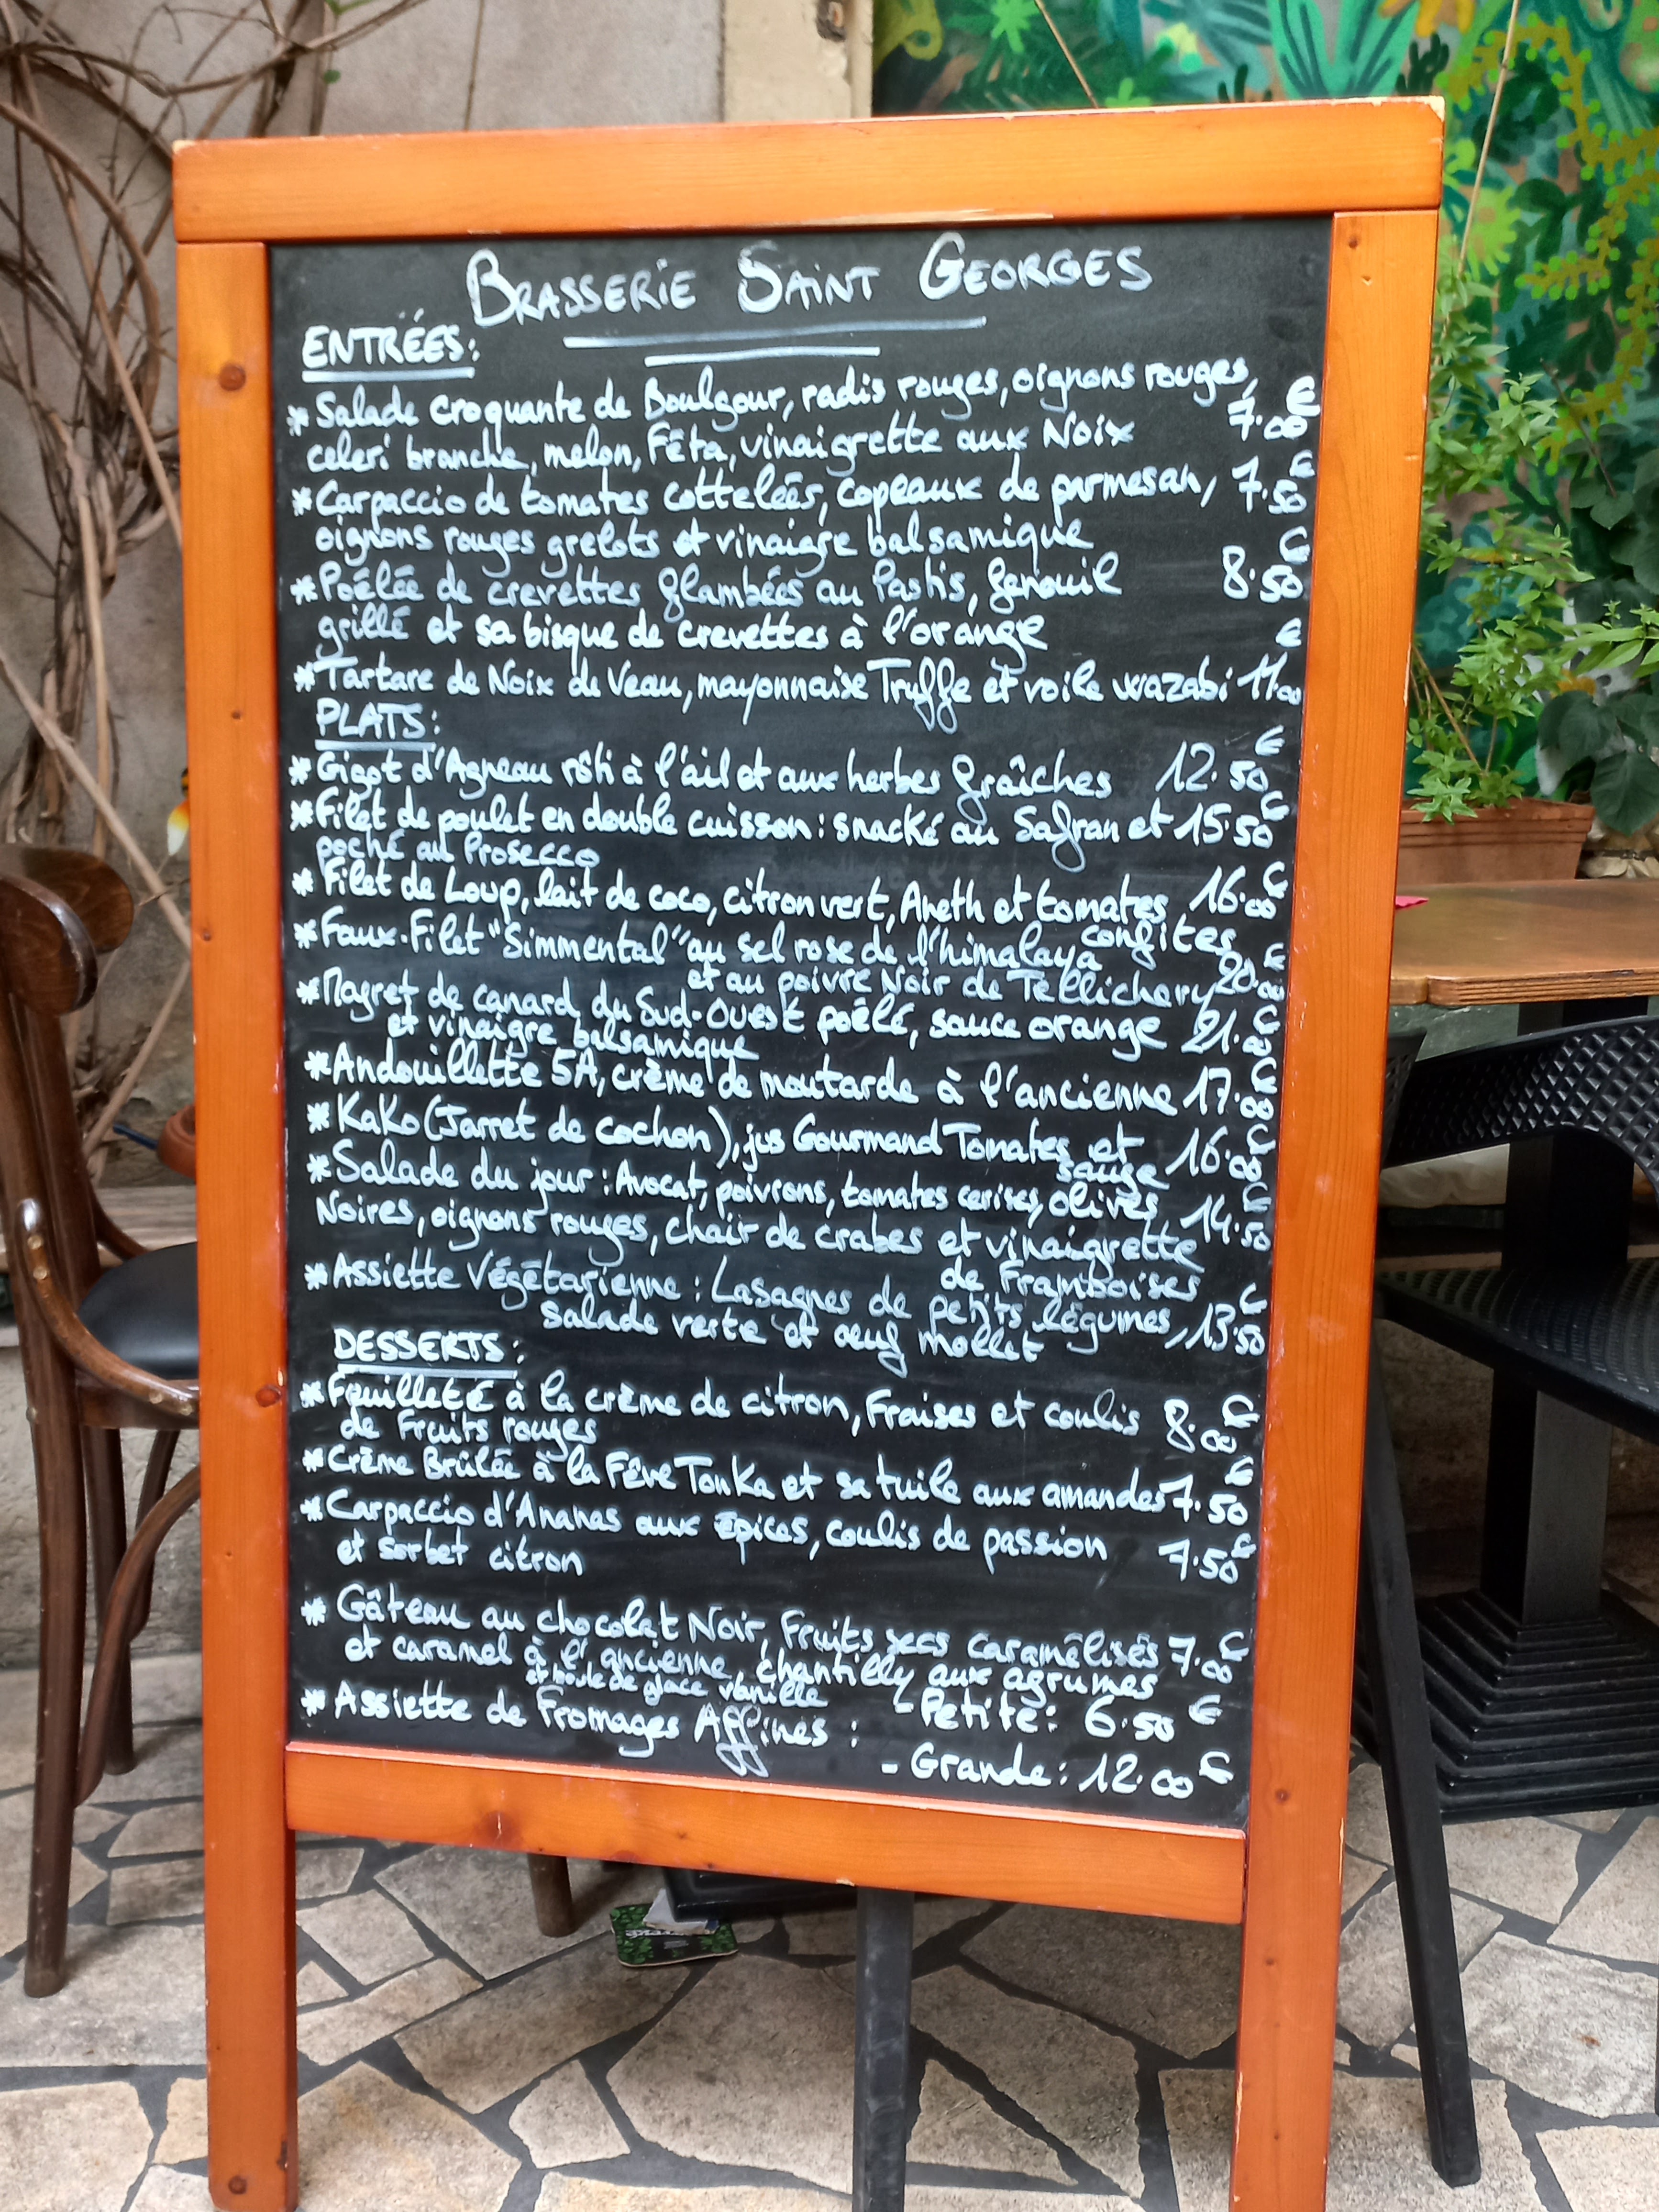 BRASSERIE SAINT GEORGES
ENTRÉES:
* Salade croquante de Boulgour, radis rouges, oignons rouges,
celeri branche, melon, Fêta, vinaigrette aux Noix 7.00€
* Carpaccio de tomates cotteleés, copeaux de parmesan, 7.50€
oignons rouges grelots et vinaigre balsamique
* Poélée de crevettes flambées au Pastis, fenouil 8.50€
grillé et sa bisque de crevettes à l'orange
* Tartare de Noix de Veau, mayonnaise Truffe et voile wazabi 11.00€
PLATS:
* Gigot d'Agneau rôti à l'ail et aux herbes fraîches 12.50€
* Filet de poulet en double cuisson: snacké au Safran et 15.50€
poché au Prosecco
* Filet de Loup, lait de coco, citron vert, Aneth et tomates 16.00€
confites
* Faux-Filet "Simmental" au sel rose de l'himalaya
et au poivre Noir de Tellichery 20.00€
* Magret de canard du Sud-Ouest poêlé, sauce orange 21.00€
et vinaigre balsamique
* Andouillette 5A, crème de moutarde à l'ancienne 17.00€
* KaKo (Jarret de cochon), jus Gourmand Tomates et 16.00€
sauge
* Salade du jour: Avocat, poivrons, tomates cerises, olives 14.50€
Noires, oignons rouges, chair de crabes et vinaigrette
de Framboises
* Assiette Végétarienne: Lasagnes de petits légumes, 13.50€
salade verte et œuf mollet
DESSERTS:
* Feuilleté à la crème de citron, Fraises et coulis 8.00€
de Fruits rouges
* Crème Brûlée à la Fève TonKa et sa tuile aux amandes 7.50€
* Carpaccio d'Ananas aux épices, coulis de passion 7.50€
et sorbet citron
* Gâteau au chocolat Noir, Fruits secs caramélisés 7.00€
et caramel à l'ancienne, chantilly aux agrumes
et boule de glace vanille
* Assiette de Fromages Affinés: - Petite: 6.50€
- Grande: 12.00€